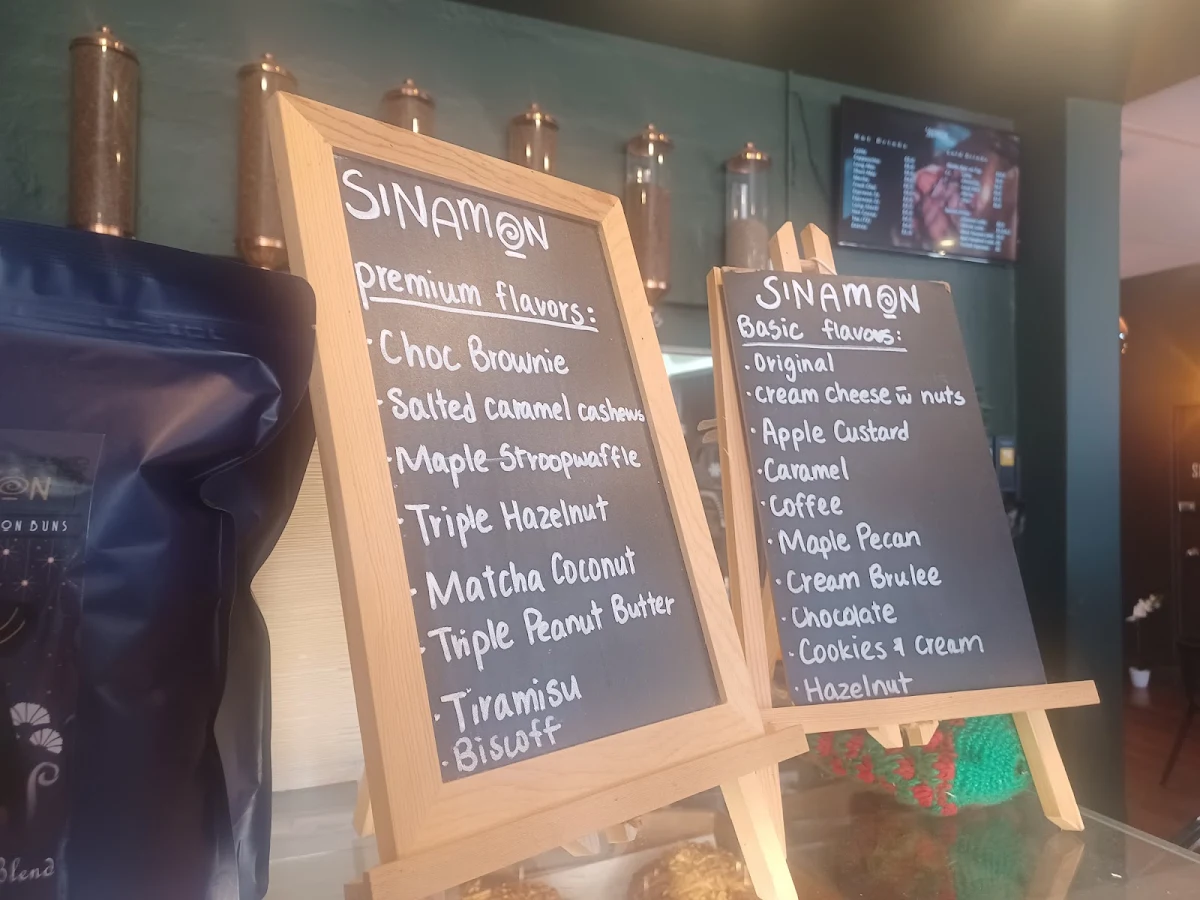 SINAMON
premium flavors:
· Choc Brownie
· Salted caramel cashews
· Maple Stroopwaffle
· Triple Hazelnut
· Matcha Coconut
· Triple Peanut Butter
· Tiramisu
· Biscoff
SINAMON
Basic flavors:
· Original
· cream cheese w̄ nuts
· Apple Custard
· Caramel
· Coffee
· Maple Pecan
· Cream Brulee
· Chocolate
· Cookies & Cream
· Hazelnut
Hot Drinks
Cold Drinks
ON
ON BUNS
Blend